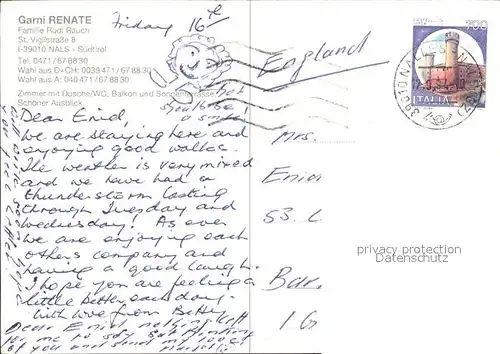 Garni RENATE
Familie Rudi Rauch
St. Vigilstraße 8
I-39010 NALS - Südtirol
Tel. 0471/678830
Wahl aus D+CH: 0039471/678830
Wahl aus A: 040471/678830
Zimmer mit Dusche/WC, Balkon und Sonnenterrasse
Schöner Ausblick
Friday 16th
not
shoulbe
a smile!
Dear Enid,
we are staying here and
enjoying good walks.
The weather is very mixed
and we have had a
thunderstorm lasting
through Tuesday and
Wednesday! As ever
we are enjoying each
others company and
having a good laugh.
I hope you are feeling a
little better each day.
With love from Betty
Dear Enid nothing left
for me to say but thinking
of you and send my love
England
700
ITALIA
39010 NALLES
Mrs.
Enid
53. L
Bar
IG
privacy protection
Datenschutz